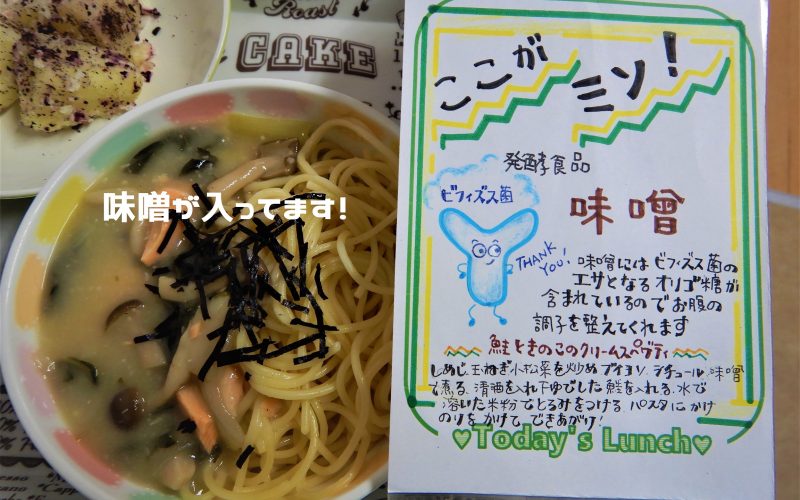 Roast
CAKE
味噌が入ってます!
ここが
ミソ!
発酵食品
ビフィズス菌
味噌
THANK
YOU!
味噌にはビフィズス菌の
エサとなるオリゴ糖が
含まれているのでお腹の
調子を整えてくれます
鮭ときのこのクリームスパゲティ
しめじ、玉ねぎ小松菜を炒めブイヨン、シチュール、味噌
で煮る。清酒を入れ下ゆでした鮭を入れる。水で
溶いた米粉でとろみをつける。パスタにかけ
のりをかけてできあがり!
♥Today's Lunch♥